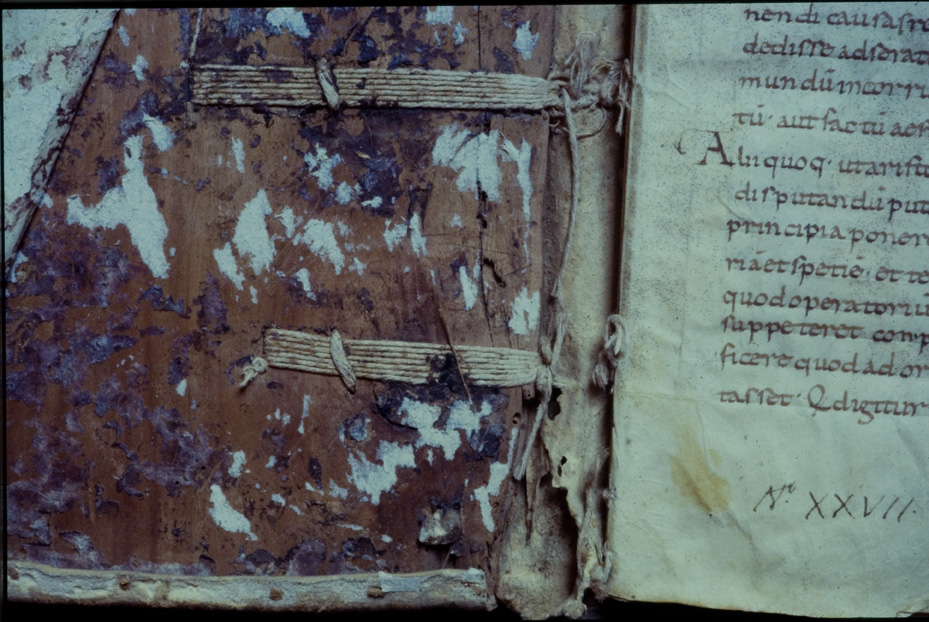 nendi causas re
dedisse adserat
mundū incorru
tū· aut factū aes
Alii quoq· ut arist
disputandū put
principia poner
riā et speciē· et te
quod operatoriū
suppeteret· comp
ficere quod ad or
tasset· Qd igitur
No XXVII·